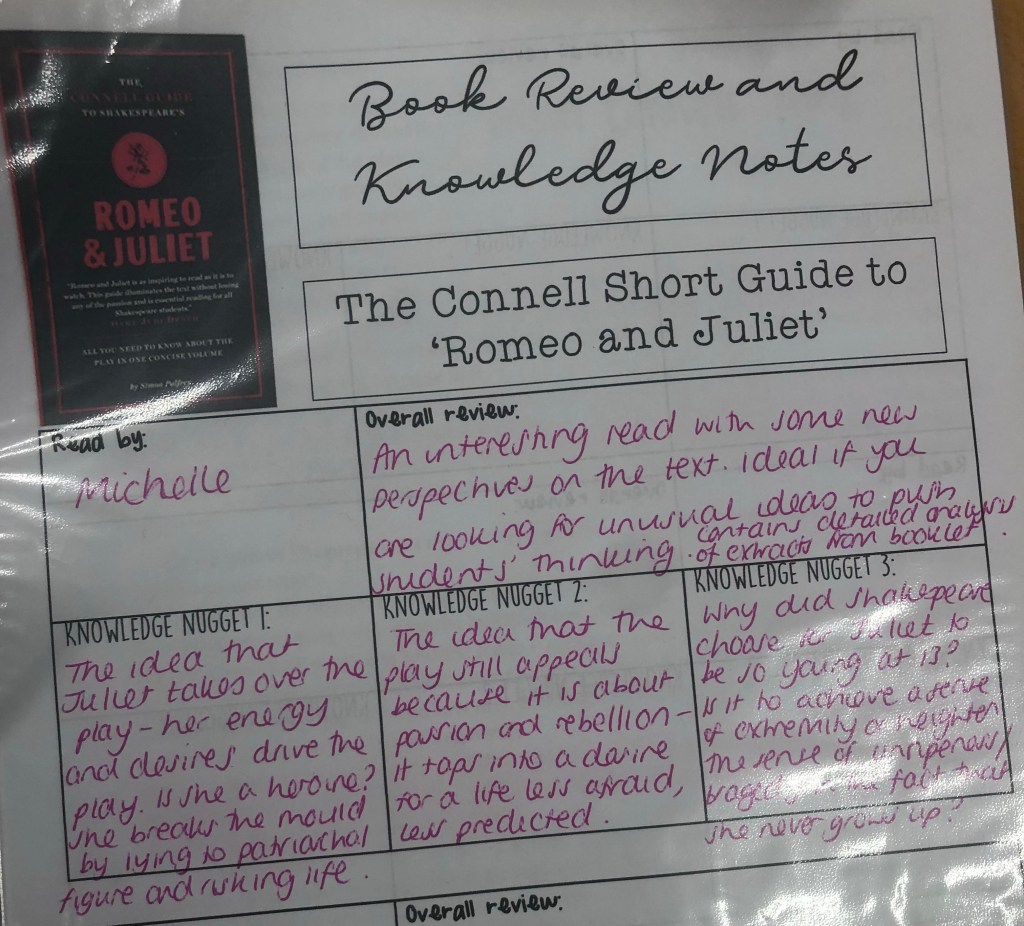 THE
CONNELL GUIDE
TO SHAKESPEARE'S
ROMEO
& JULIET
"Romeo and Juliet is as inspiring to read as it is to
watch. This guide illuminates the text without losing
any of the passion and is essential reading for all
Shakespeare students."
ALL YOU NEED TO KNOW ABOUT THE
PLAY IN ONE CONCISE VOLUME
by Simon Palfrey
Book Review and
Knowledge Notes
The Connell Short Guide to
'Romeo and Juliet'
Read by:
Michelle
Overall review:
An interesting read with some new
perspectives on the text. ideal if you
are looking for unusual ideas to push
students' thinking. contains detailed analysis
of extracts from booklet.
KNOWLEDGE NUGGET 1:
The idea that
Juliet takes over the
play - her energy
and desires drive the
play. Is she a heroine?
She breaks the mould
by lying to patriarchal
figure and risking life.
KNOWLEDGE NUGGET 2:
The idea that the
play still appeals
because it is about
passion and rebellion -
it taps into a desire
for a life less afraid,
less predicted.
KNOWLEDGE NUGGET 3:
Why did Shakespeare
choose for Juliet to
be so young at 13?
Is it to achieve a sense
of extremity or heighten
the sense of unripeness/
tragedy in the fact that
she never grows up?
Overall review: